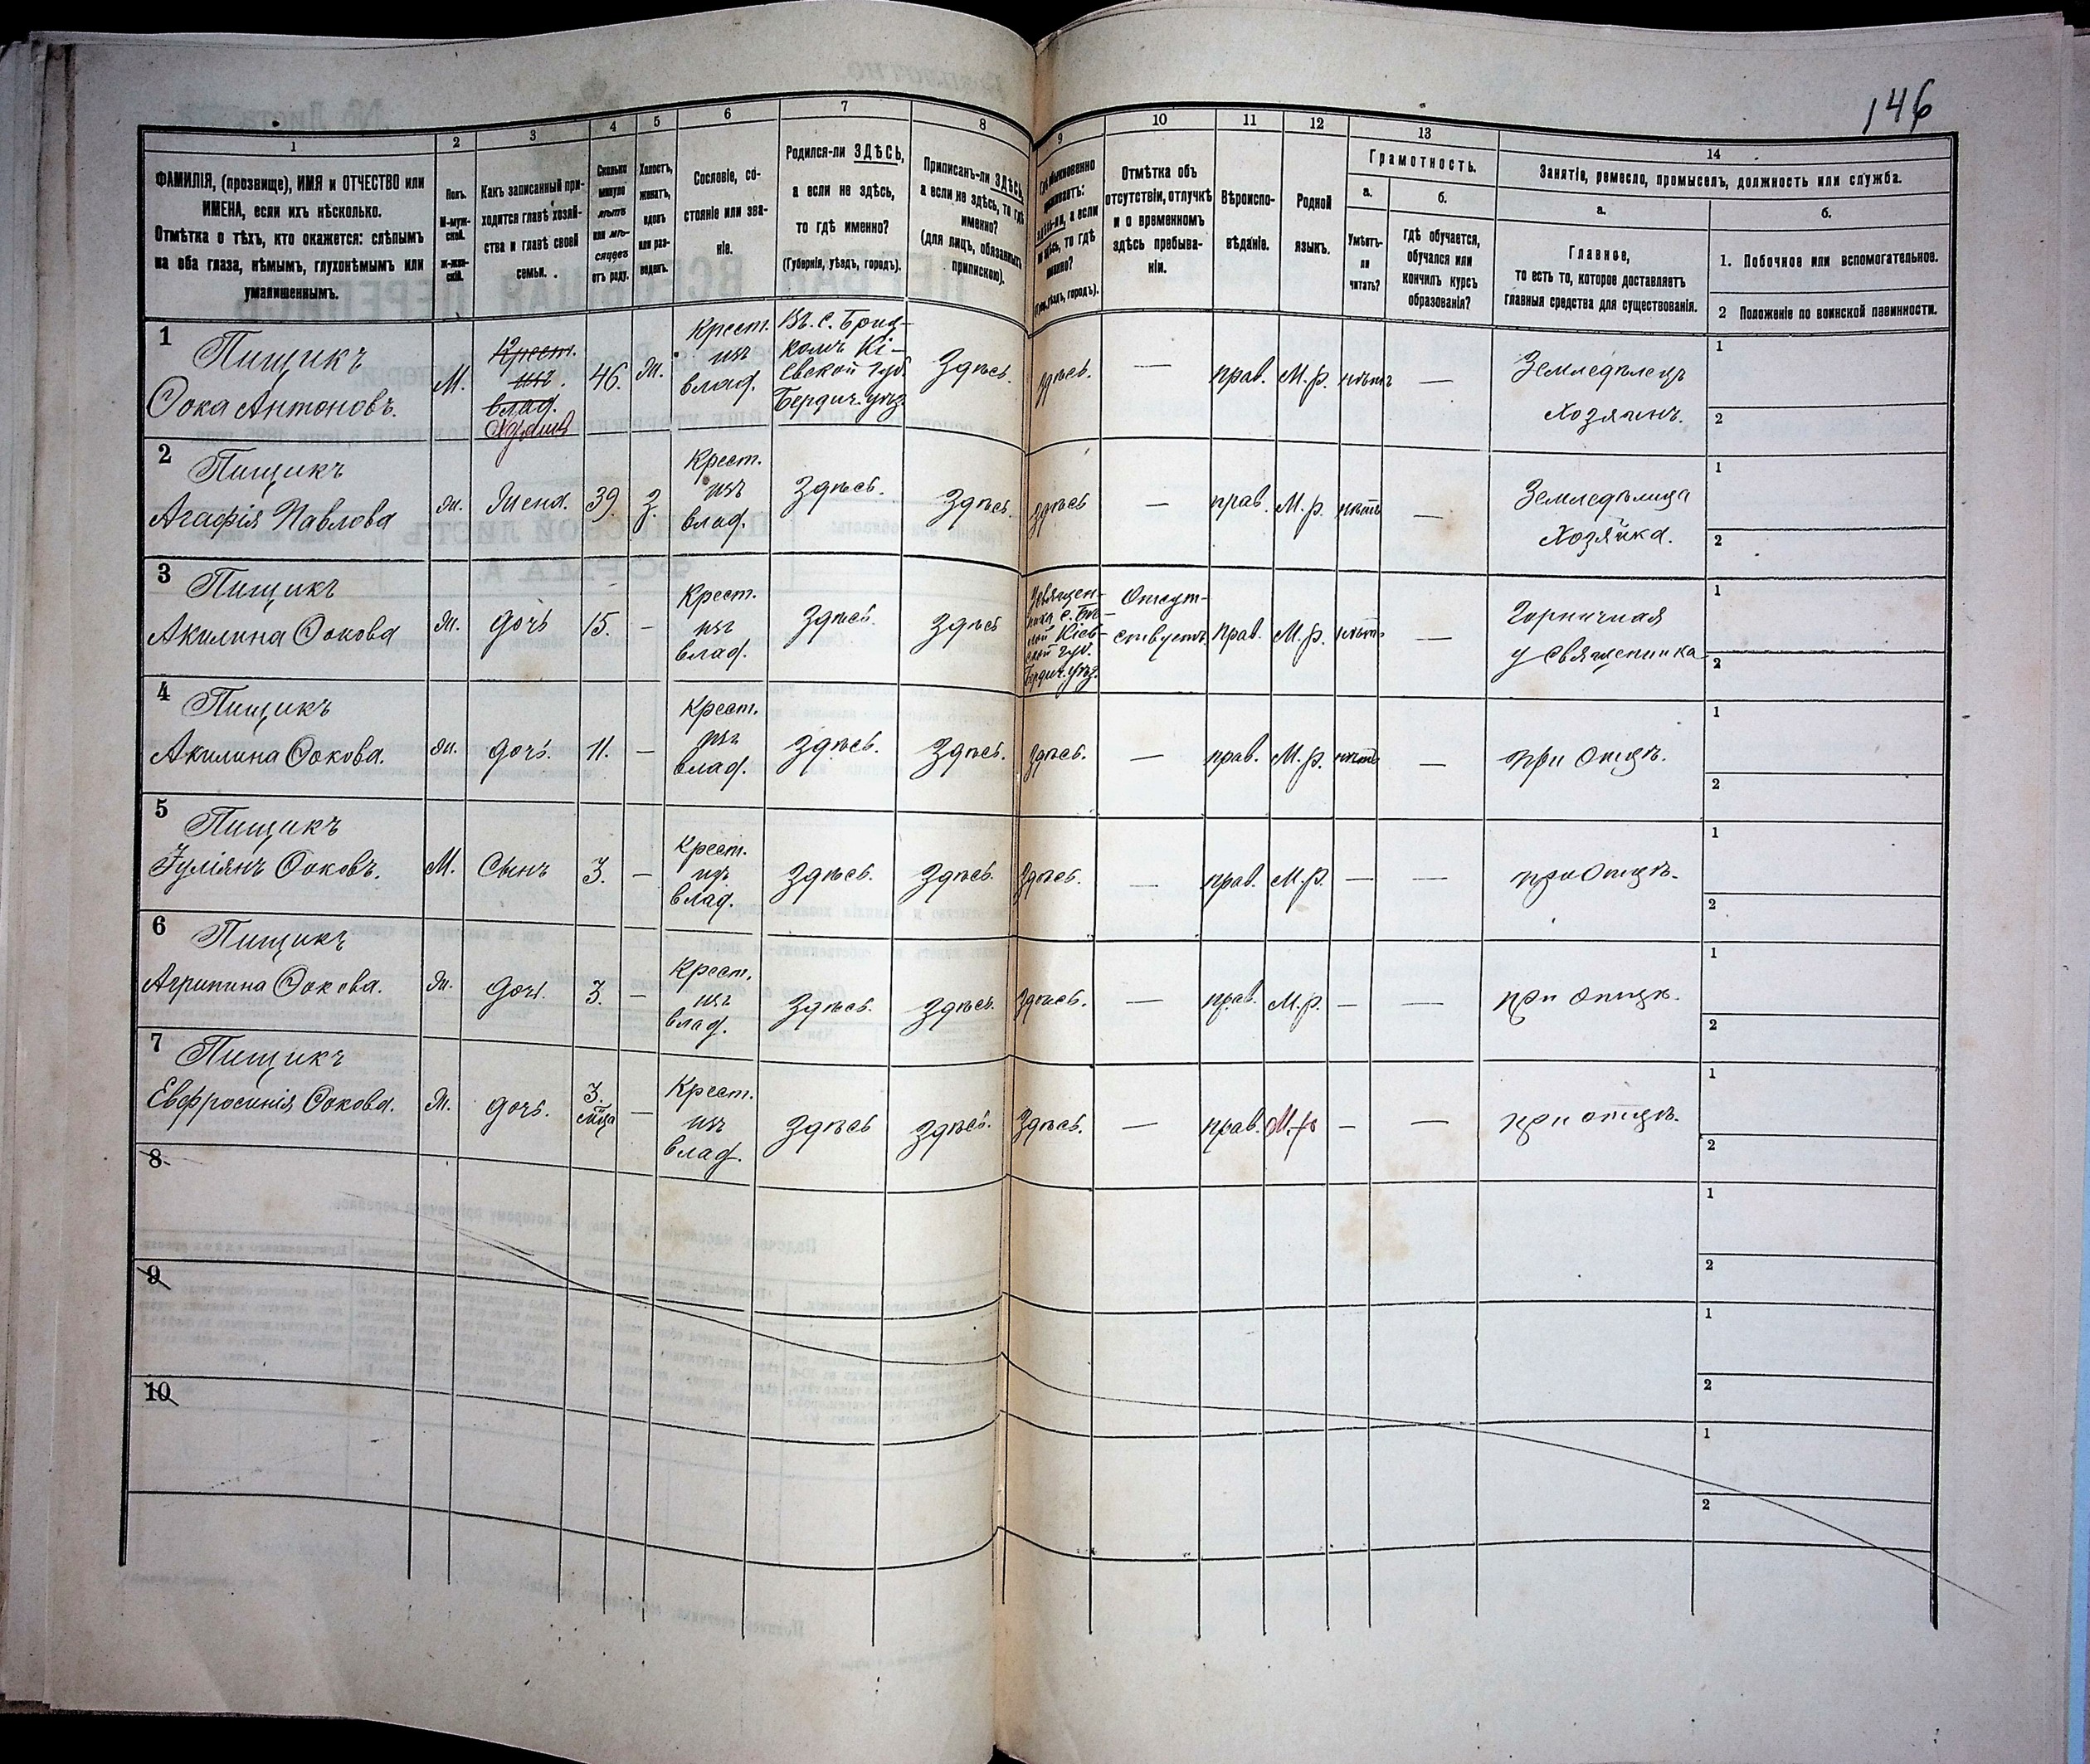 146
1
2
3
4
5
6
7
8
9
10
11
12
13
14
ФАМИЛІЯ, (прозвище), ИМЯ и ОТЧЕСТВО или
ИМЕНА, если ихъ нѣсколько.
Отмѣтка о тѣхъ, кто окажется: слѣпымъ
на оба глаза, нѣмымъ, глухонѣмымъ или
умалишеннымъ.
Полъ.
М-муж-
ской.
Ж-жен-
скій.
Какъ записанный при-
ходится главѣ хозяй-
ства и главѣ своей
семьи.
Сколько
минуло
лѣтъ
или мѣ-
сяцевъ
отъ роду.
Холостъ,
женатъ,
вдовъ
или раз-
веденъ.
Сословіе, со-
стояніе или зва-
ніе.
Родился-ли ЗДѢСЬ,
а если не здѣсь,
то гдѣ именно?
(Губернія, уѣздъ, городъ).
Приписанъ-ли ЗДѢСЬ,
а если не здѣсь, то гдѣ
именно?
(для лицъ, обязанныхъ
припискою).
Отмѣтка объ
отсутствіи, отлучкѣ
и о временномъ
здѣсь пребыва-
ніи.
Вѣроиспо-
вѣданіе.
Родной
языкъ.
Грамотность.
а.
б.
Умѣетъ-
ли
читать?
гдѣ обучается,
обучался или
кончилъ курсъ
образованія?
Занятіе, ремесло, промыселъ, должность или служба.
а.
б.
Главное,
то есть то, которое доставляетъ
главныя средства для существованія.
1. Побочное или вспомогательное.
2 Положеніе по воинской повинности.
1
Пищикъ
Ѳока Антоновъ.
М.
Крест.
изъ.
влад.
Хозяинъ
46.
Ж.
Крест.
изъ
влад.
Въ. с.
Кі-
евской губ.
Бердич. уѣз.
Здѣсь.
Здѣсь.
—
прав.
М. р.
нѣтъ
—
Земледѣлецъ
Хозяинъ.
1
2
2
Пищикъ
Агафія Павлова
Ж.
Жена.
39
З.
Крест.
изъ
влад.
Здѣсь.
Здѣсь.
Здѣсь
—
прав.
М. р.
нѣтъ
—
Земледѣлица
Хозяйка.
1
2
3
Пищикъ
Акилина Ѳокова
Ж.
дочь
15.
—
Крест.
изъ
влад.
Здѣсь.
Здѣсь
Кіев-
ской губ.
Бердич. уѣз.
Отсут-
ствуетъ.
прав.
М. р.
нѣтъ
—
Горничная
у Священника
1
2
4
Пищикъ
Акилина Ѳокова.
Ж.
дочь.
11.
—
Крест.
изъ
влад.
Здѣсь.
Здѣсь.
Здѣсь.
—
прав.
М. р.
нѣтъ
—
при Отцѣ.
1
2
5
Пищикъ
Іуліянъ Ѳоковъ.
М.
Сынъ
3.
—
Крест.
изъ
влад.
Здѣсь.
Здѣсь.
Здѣсь.
—
прав.
М. р.
—
—
при Отцѣ.
1
2
6
Пищикъ
Агрипина Ѳокова.
Ж.
дочь.
3.
—
Крест.
изъ
влад.
Здѣсь.
Здѣсь.
Здѣсь.
—
прав.
М. р.
—
—
при отцѣ.
1
2
7
Пищикъ
Евфросинія Ѳокова.
Ж.
дочь.
3.
м-ца
—
Крест.
изъ
влад.
Здѣсь
Здѣсь.
Здѣсь.
—
прав.
М. р
—
—
при отцѣ.
1
2
8
1
2
9
1
2
10
1
2